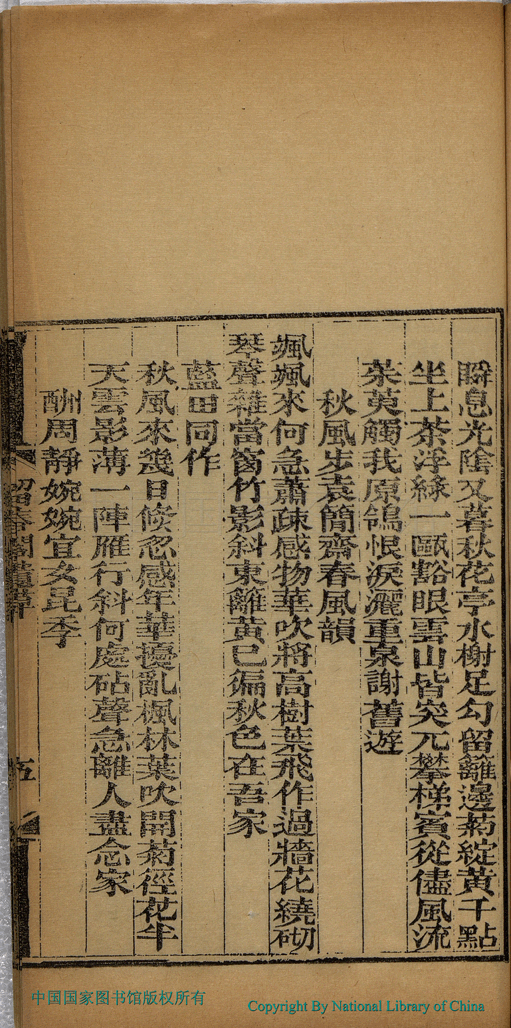 瞬息光陰又暮秋花亭水榭足勾留籬邊菊綻黃千點
坐上茶浮綠一甌豁眼雲山皆突兀攀梯賓從儘風流
茱萸觸我原鴒恨淚灑重泉謝舊遊
秋風步袁簡齋春風韻
颯颯來何急蕭疎感物華吹將高樹葉飛作過牆花繞砌
琴聲雜當窗竹影斜東籬黃已徧秋色在吾家
藍田同作
秋風來幾日倏忽感年華擾亂楓林葉吹開菊徑花半
天雲影薄一陣雁行斜何處砧聲急離人盡念家
酬周靜婉婉宜女昆季
五
中国国家图书馆版权所有
Copyright By National Library of China